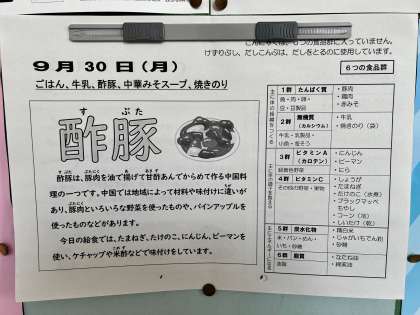 入っていません。
けずりぶし、だしこんぶは、だしをとるのに使用しています。
9月30日(月)
ごはん、牛乳、酢豚、中華みそスープ、焼きのり
6つの食品群
すぶた
酢豚
酢豚は、豚肉を油で揚げて甘酢あんでからめて作る中国料
理の一つです。中国では地域によって材料や味付けに違いが
あり、豚肉といろいろな野菜を使ったものや、パインアップルを
使ったものなどがあります。
今日の給食では、たまねぎ、たけのこ、にんじん、ピーマンを
使い、ケチャップや米酢などで味付けをしています。
1群 たんぱく質
魚・肉・卵・
豆・豆製品
・豚肉
・鶏肉
・赤みそ
2群 無機質
(カルシウム)
牛乳・乳製品・
小魚・海そう
・牛乳
・焼きのり(袋)
3群 ビタミンA
(カロテン)
緑黄色野菜
・にんじん
・ピーマン
・にら
4群 ビタミンC
その他の野菜・果物
・しょうが
・たまねぎ
・たけのこ(水煮)
・ブラックマッペ
もやし
・コーン(冷)
・しいたけ(乾)
5群 炭水化物
米・パン・めん・
いも・砂糖
・精白米
・じゃがいもでん粉
・砂糖
6群 脂質
油脂
・なたね油
・綿実油